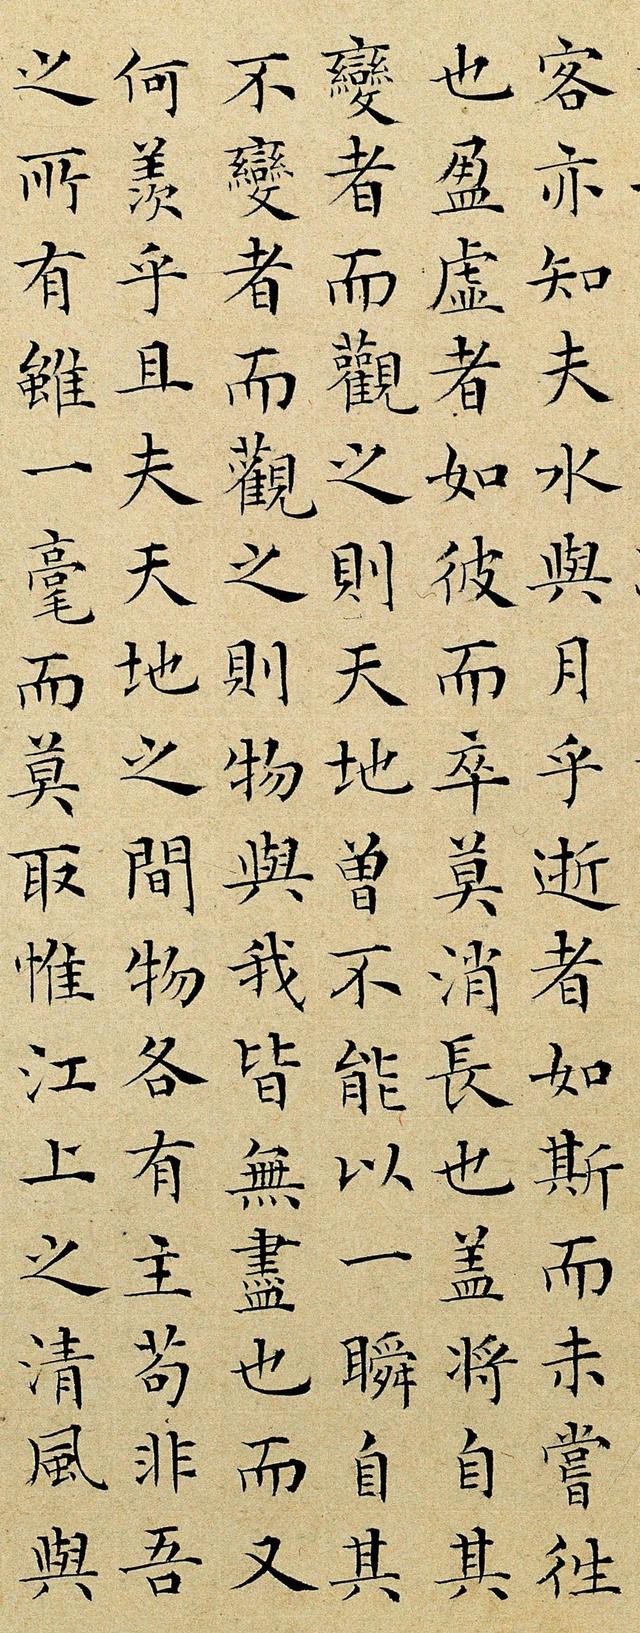 客亦知夫水與月乎逝者如斯而未嘗徃
也盈虛者如彼而卒莫消長也盖将自其
變者而觀之則天地曾不能以一瞬自其
不變者而觀之則物與我皆無盡也而又
何羨乎且夫天地之間物各有主苟非吾
之所有雖一毫而莫取惟江上之清風與